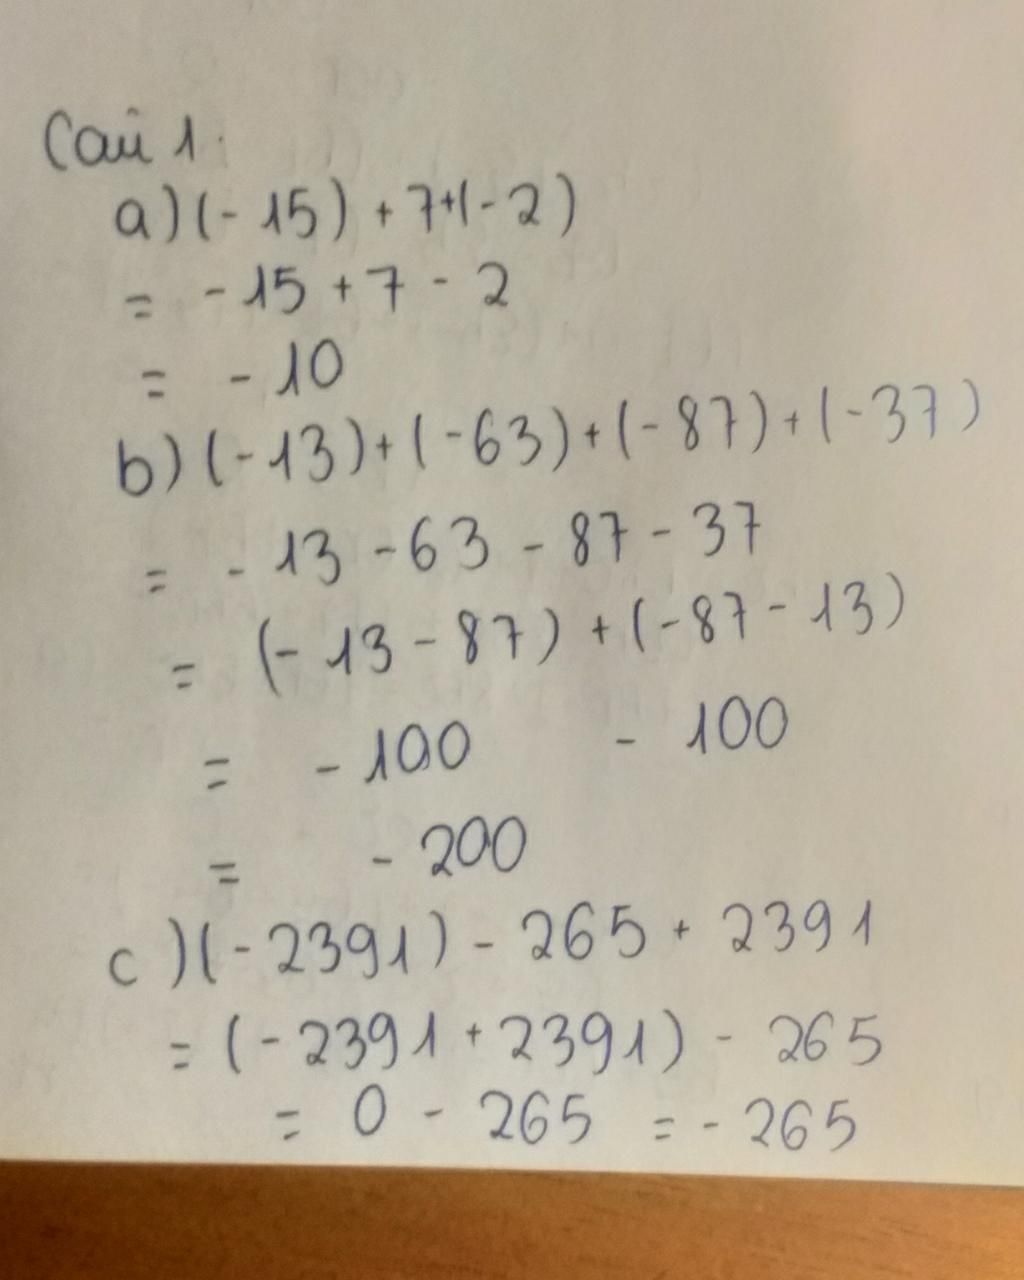 Câu 1.
a) (-15) + 7 + (-2)
= -15 + 7 - 2
= -10
b) (-13) + (-63) + (-87) + (-37)
= -13 - 63 - 87 - 37
= (-13 - 87) + (-87 - 13)
= -100 - 100
= -200
c) (-2391) - 265 + 2391
= (-2391 + 2391) - 265
= 0 - 265 = -265